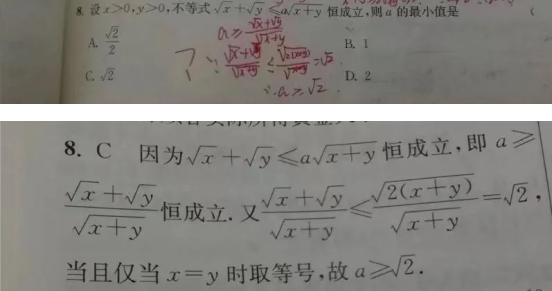 8. 设 x>0, y>0, 不等式 √x+√y ≤ a√(x+y) 恒成立, 则 a 的最小值是 (
a ≥ (√x+√y)/√(x+y)
A. √2/2
B. 1
? ∵ (√x+√y)/√(x+y) ≤ √(2(x+y))/√(x+y) = √2
C. √2
D. 2
∴ a ≥ √2
8. C 因为 √x+√y ≤ a√(x+y) 恒成立, 即 a ≥
(√x+√y)/√(x+y) 恒成立. 又 (√x+√y)/√(x+y) ≤ √(2(x+y))/√(x+y) = √2,
当且仅当 x=y 时取等号, 故 a ≥ √2.